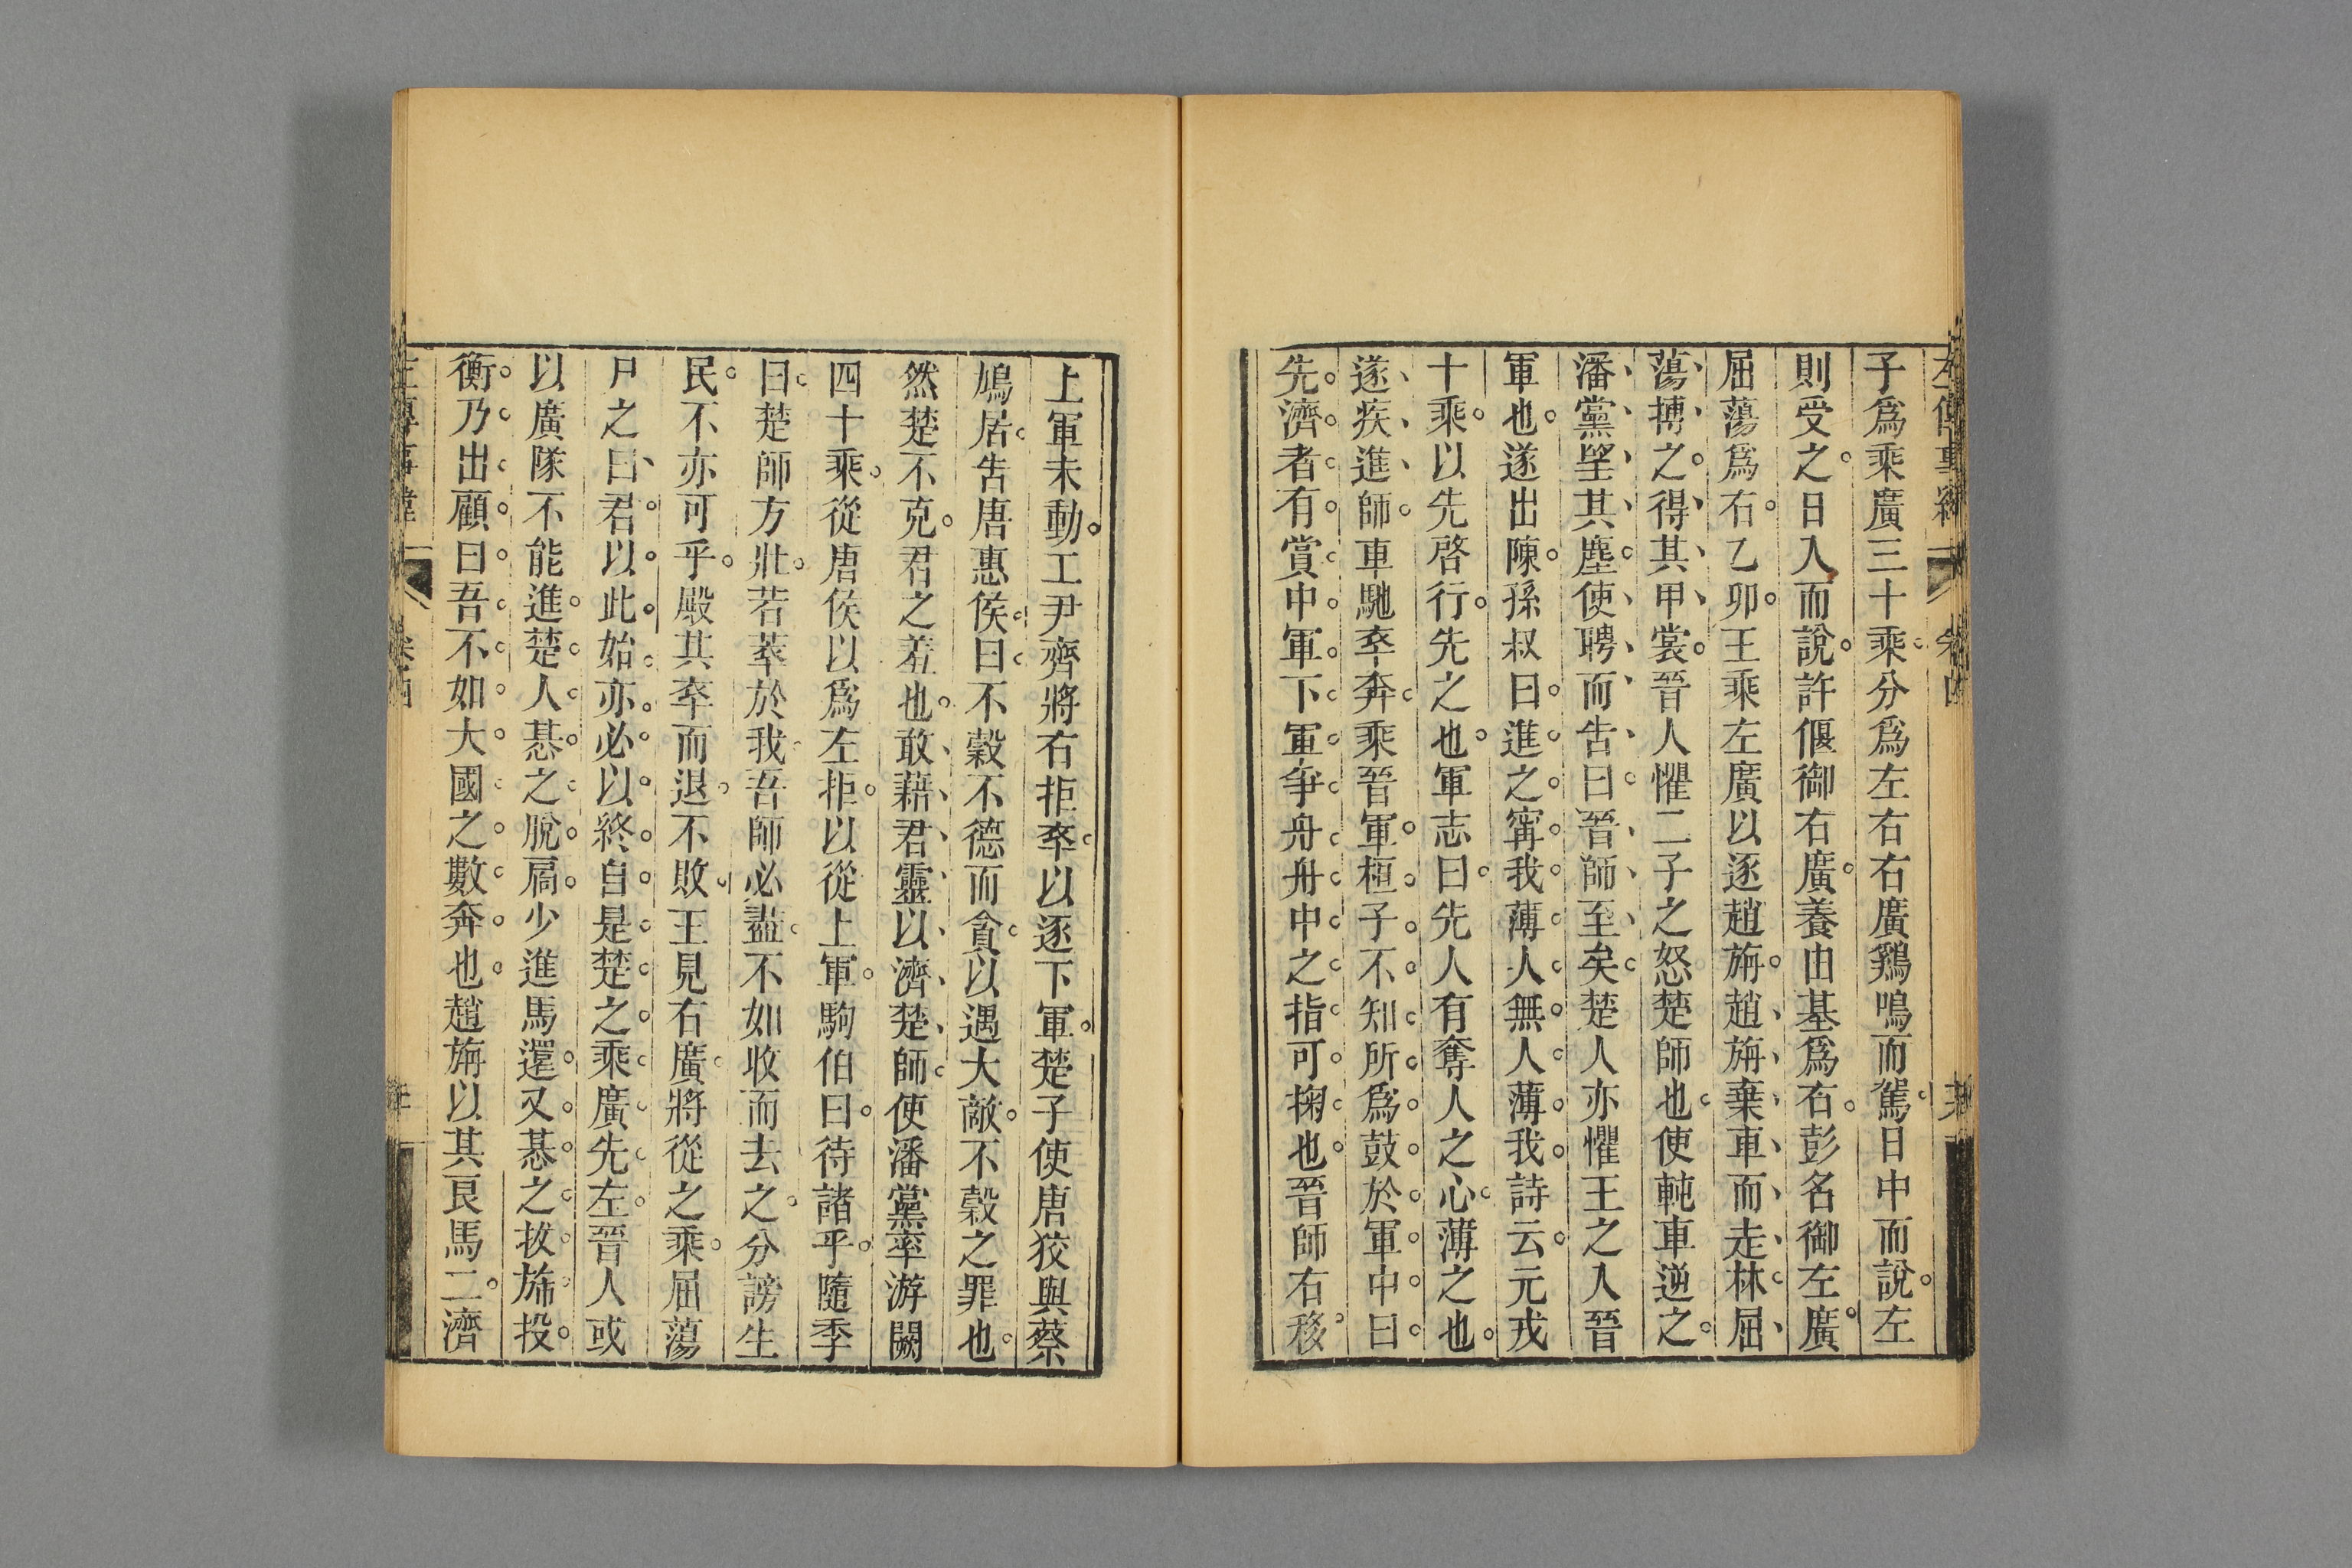 子爲乘廣三十乘分爲左右右廣鷄鳴而駕日中而說左
則受之日入而說許偃御右廣養由基爲右彭名御左廣
屈蕩爲右乙卯王乘左廣以逐趙旃趙旃棄車而走林屈
蕩搏之得其甲裳晉人懼二子之怒楚師也使軘車逆之
潘黨望其塵使聘而告曰晉師至矣楚人亦懼王之入晉
軍也遂出陳孫叔曰進之寗我薄人無人薄我詩云元戎
十乘以先啓行先之也軍志曰先人有奪人之心薄之也
遂疾進師車馳卒奔乘晉軍桓子不知所爲鼓於軍中曰
先濟者有賞中軍下軍爭舟舟中之指可掬也晉師右移
上軍未動工尹齊將右拒卒以逐下軍楚子使唐狡與蔡
鳩居告唐惠侯曰不穀不德而貪以遇大敵不穀之罪也
然楚不克君之羞也敢藉君靈以濟楚師使潘黨率游闕
四十乘從唐侯以爲左拒以從上軍駒伯曰待諸乎隨季
曰楚師方壯若萃於我吾師必盡不如收而去之分謗生
民不亦可乎殿其卒而退不敗王見右廣將從之乘屈蕩
尸之曰君以此始亦必以終自是楚之乘廣先左晉人或
以廣隊不能進楚人惎之脫扃少進馬還又惎之拔旆投
衡乃出顧曰吾不如大國之數奔也趙旃以其良馬二濟